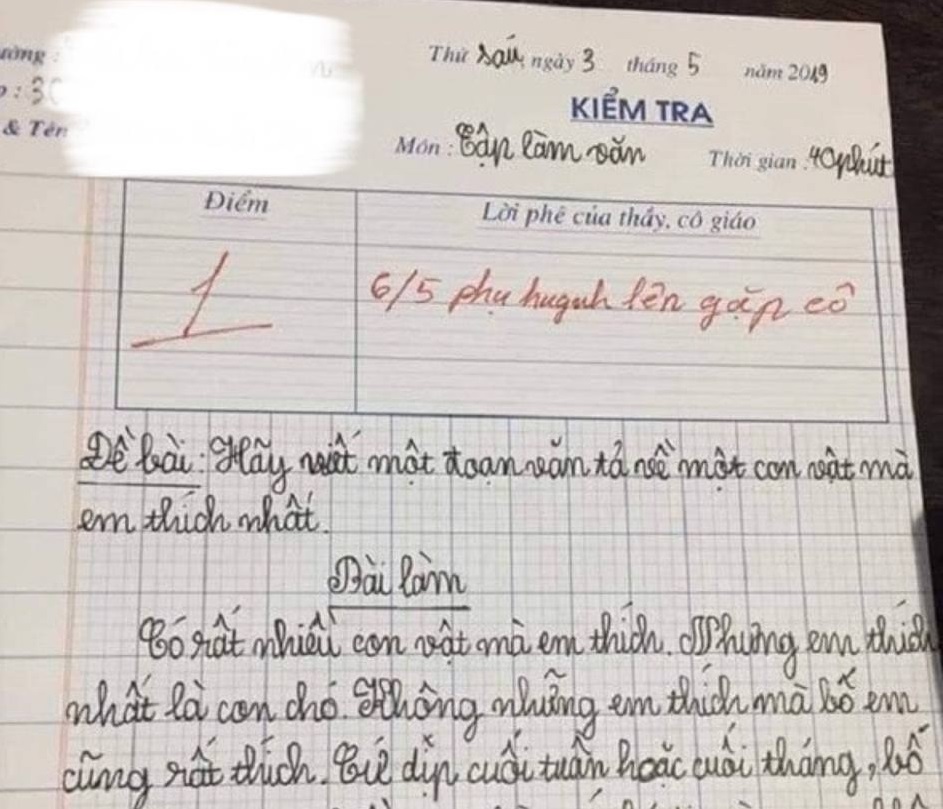 Thứ Sáu, ngày 3 tháng 5 năm 2019
KIỂM TRA
& Tên
Môn: Tập làm văn Thời gian: 40 phút
Điểm
Lời phê của thầy, cô giáo
1
6/5 phụ huynh lên gặp cô
Đề bài: Hãy viết một đoạn văn tả về một con vật mà
em thích nhất.
Bài làm
Có rất nhiều con vật mà em thích. Nhưng em thích
nhất là con chó. Không những em thích mà bố em
cũng rất thích. Cứ dịp cuối tuần hoặc cuối tháng, bố